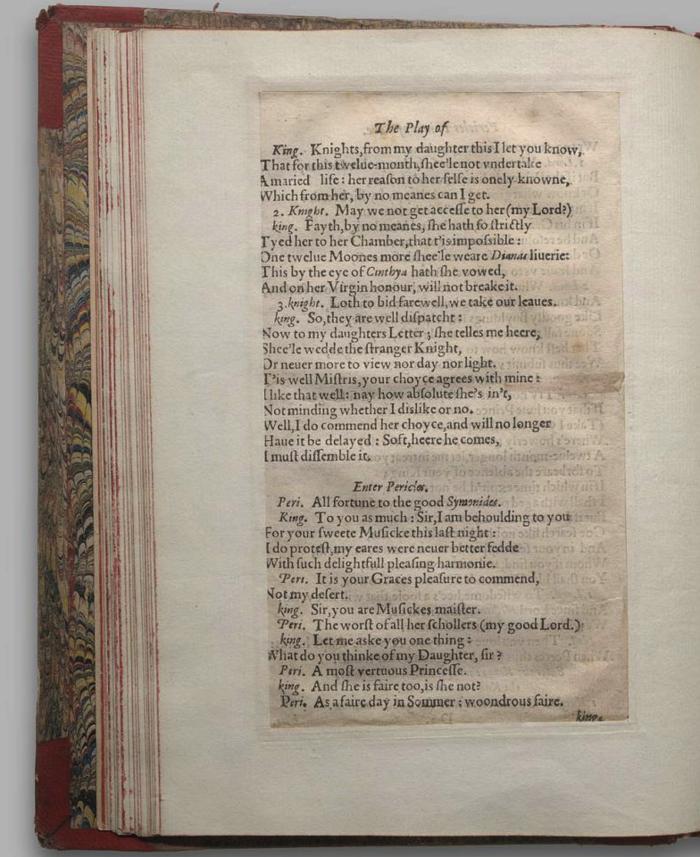 The Play of
King. Knights,from my daughter this I let you know,
That for this twelue-month,shee'le not vndertake
A maried life : her reason to her selfe is onely knowne,
Which from her, by no meanes can I get.
2. Knight. May we not get accesse to her (my Lord?)
king. Fayth,by no meanes, she hath so strictly
Tyed her to her Chamber,that t'is impossible :
One twelue Moones more shee'le weare Dianas liuerie:
This by the eye of Cinthya hath she vowed,
And on her Virgin honour, will not breake it.
3.knight. Loth to bid farewell, we take our leaues.
king. So,they are well dispatcht :
Now to my daughters Letter ; she telles me heere,
Shee'le wedde the stranger Knight,
Or neuer more to view nor day nor light.
T'is well Mistris,your choyce agrees with mine :
I like that well: nay how absolute she's in't,
Not minding whether I dislike or no.
Well,I do commend her choyce,and will no longer
Haue it be delayed : Soft,heere he comes,
I must dissemble it.
Enter Pericles.
Peri. All fortune to the good Symonides.
King. To you as much : Sir,I am behoulding to you
For your sweete Musicke this last night :
I do protest,my eares were neuer better fedde
With such delightfull pleasing harmonie.
Peri. It is your Graces pleasure to commend,
Not my desert.
king. Sir,you are Musickes maister.
Peri. The worst of all her schollers (my good Lord.)
king. Let me aske you one thing :
What do you thinke of my Daughter, sir ?
Peri. A most vertuous Princesse.
king. And she is faire too,is she not?
Peri. As a faire day in Sommer : woondrous faire.
king.